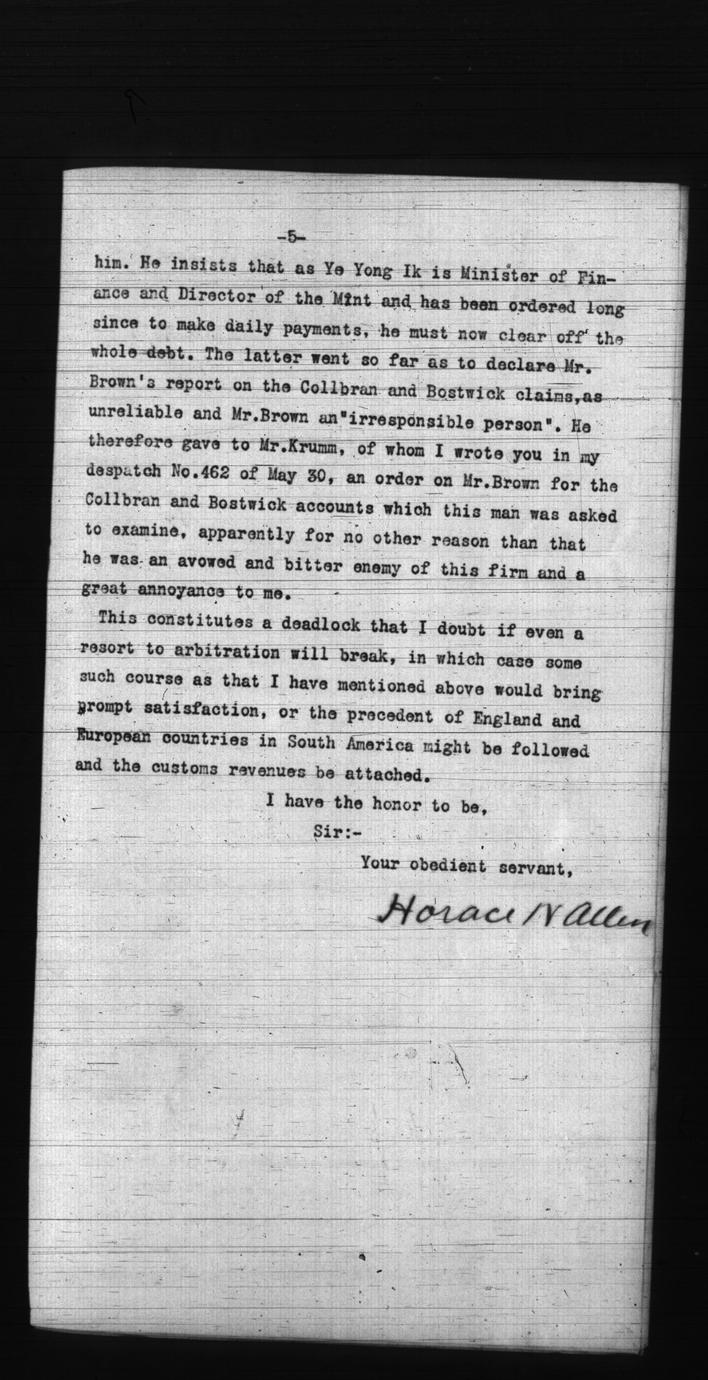 -5-
him. He insists that as Ye Yong Ik is Minister of Fin-
ance and Director of the Mint and has been ordered long
since to make daily payments, he must now clear off the
whole debt. The latter went so far as to declare Mr.
Brown's report on the Collbran and Bostwick claims,as
unreliable and Mr.Brown an"irresponsible person". He
therefore gave to Mr.Krumm, of whom I wrote you in my
despatch No.462 of May 30, an order on Mr.Brown for the
Collbran and Bostwick accounts which this man was asked
to examine, apparently for no other reason than that
he was an avowed and bitter enemy of this firm and a
great annoyance to me.
This constitutes a deadlock that I doubt if even a
resort to arbitration will break, in which case some
such course as that I have mentioned above would bring
prompt satisfaction, or the precedent of England and
European countries in South America might be followed
and the customs revenues be attached.
I have the honor to be,
Sir:-
Your obedient servant,
Horace N Allen